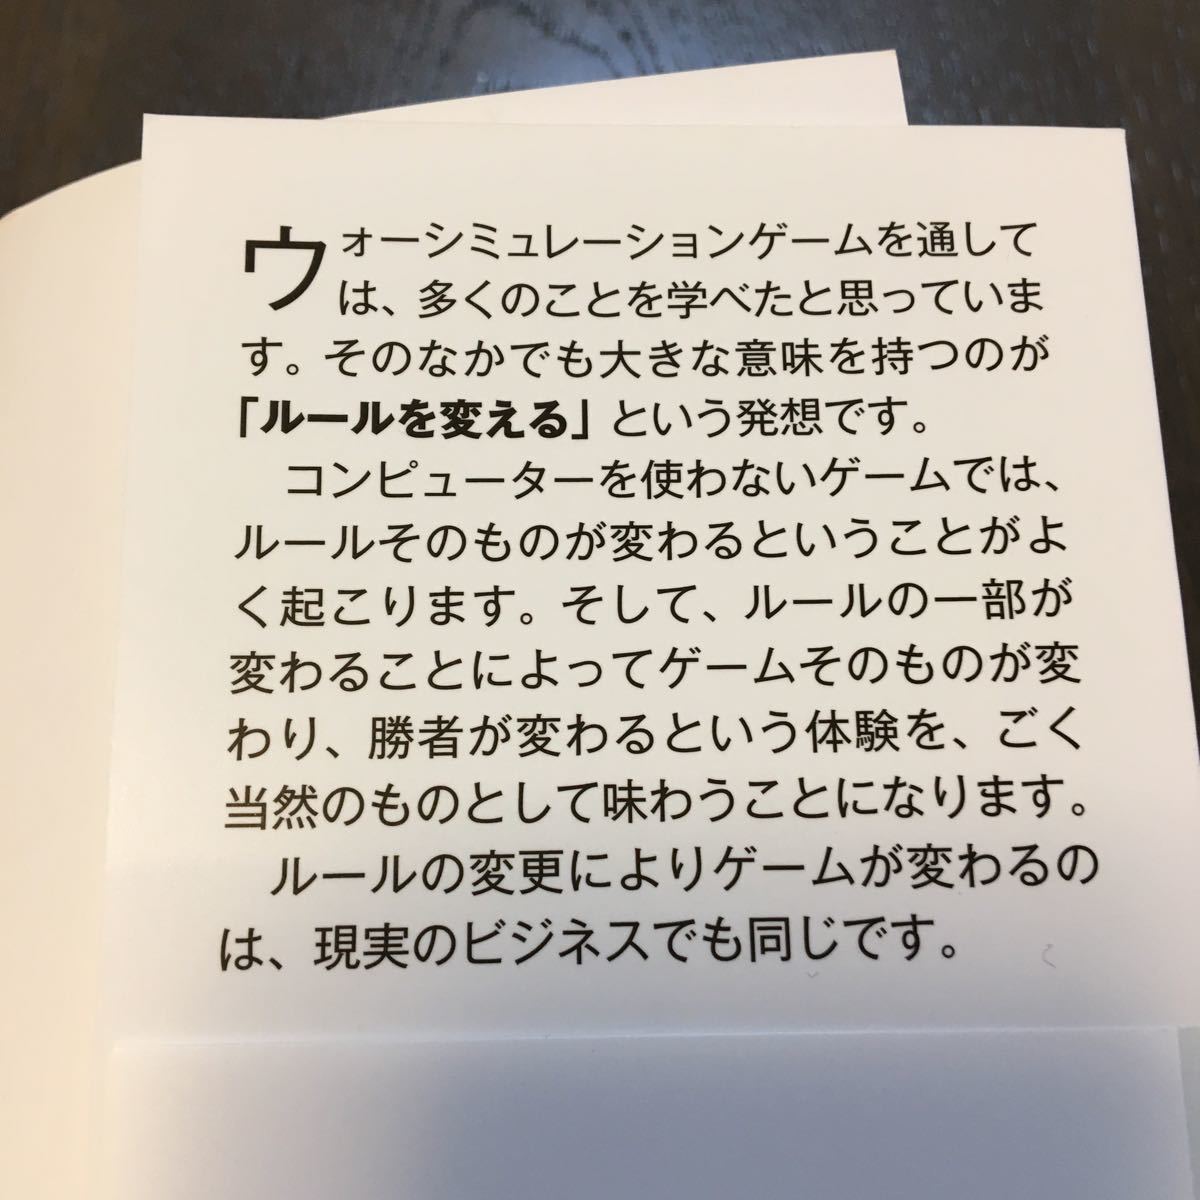 ウォーシミュレーションゲームを通して
は、多くのことを学べたと思っていま
す。そのなかでも大きな意味を持つのが
「ルールを変える」という発想です。
コンピューターを使わないゲームでは、
ルールそのものが変わるということがよ
く起こります。そして、ルールの一部が
変わることによってゲームそのものが変
わり、勝者が変わるという体験を、ごく
当然のものとして味わうことになります。
ルールの変更によりゲームが変わるの
は、現実のビジネスでも同じです。